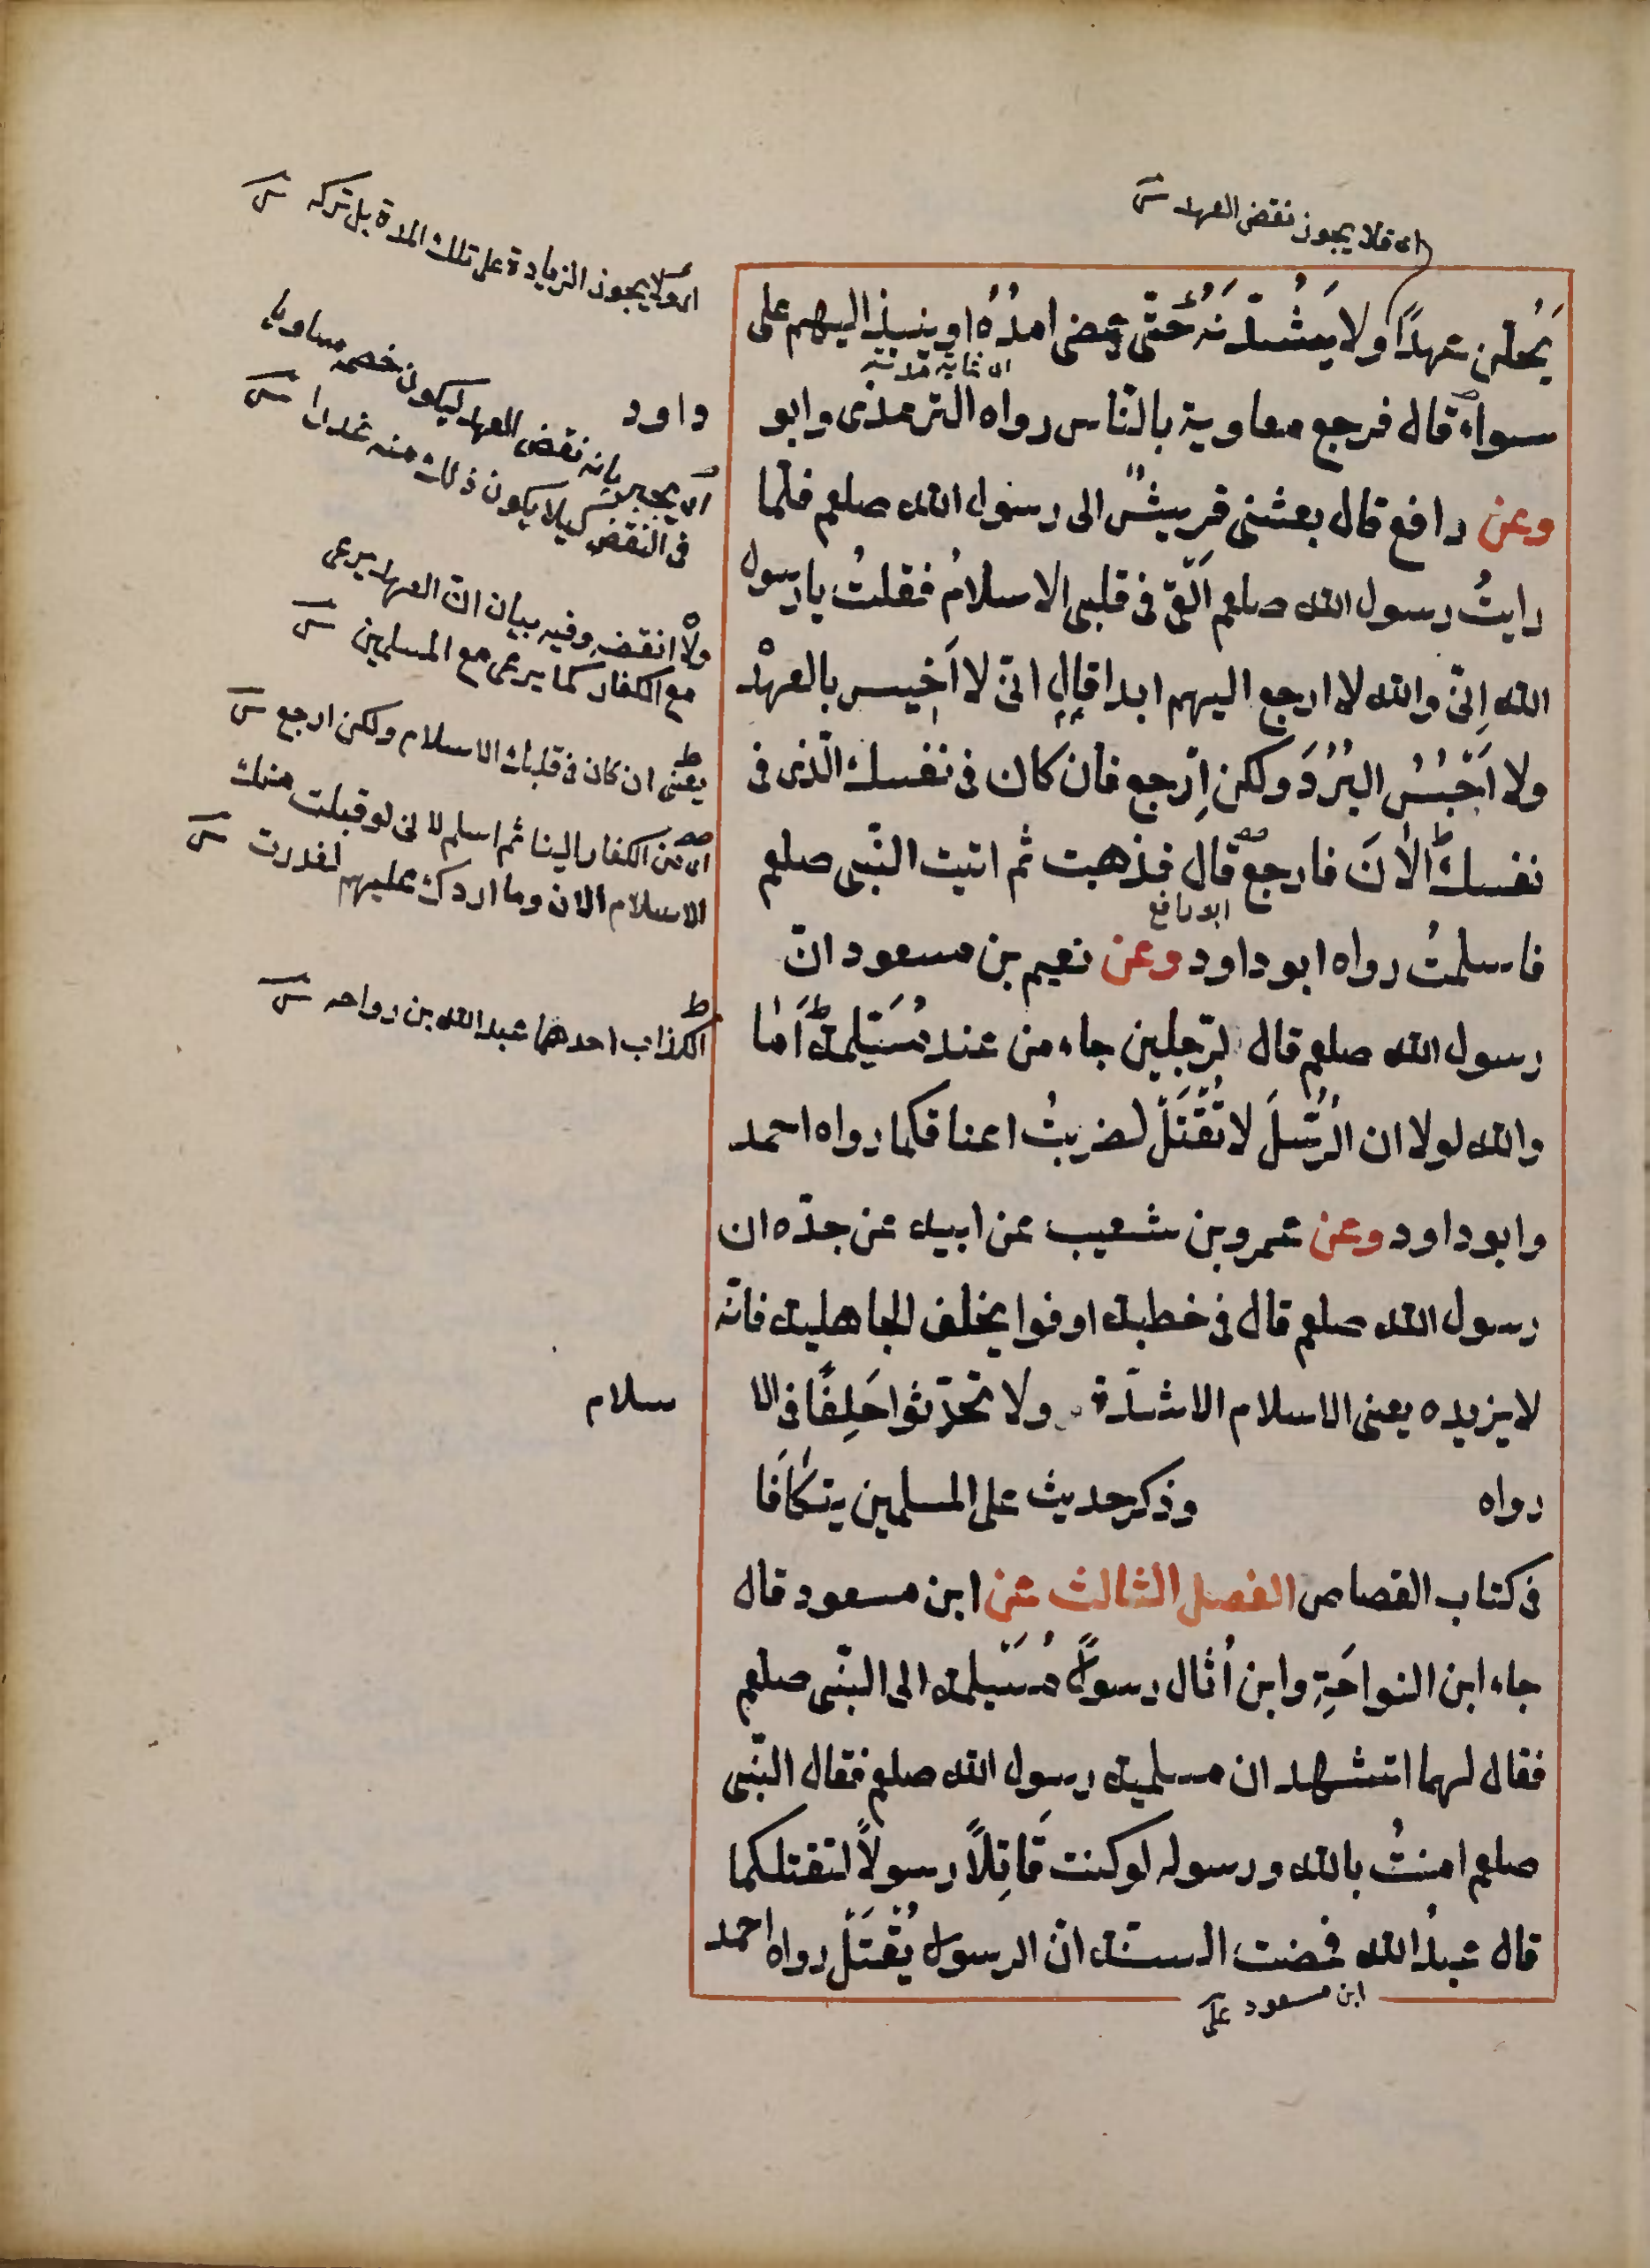 اى فلا يجوز نقض العهد
يَحُلَّن عهدًا ولا يَشُدَّنَّه حَتّى يمضى امدُهُ او ينبذ اليهم على
اى غاية مدته
سواء قال فرجع معاوية بالناس رواه الترمذى وابو
داود
وعن رافع قال بعثنى قريشٌ الى رسول الله صلعم فلما
رايتُ رسول الله صلعم اُلقى فى قلبى الاسلامُ فقلتُ يا رسول
الله اِنى والله لا ارجع اليهم ابدا قال انى لا اَخِيس بالعهد
ولا اَحْبِسُ البُرُدَ ولكن اِرجع فان كان فى نفسك الذى فى
نفسك الاٰنَ فارجع قال فذهبت ثم اتيت النبى صلعم
ابو رافع
فاسلمتُ رواه ابو داود وعن نعيم بن مسعود انّ
رسول الله صلعم قال لرجلين جاء من عند مُسَيلمة اَمَا
والله لولا ان الرُّسُلَ لا تُقْتَلُ لضربتُ اعناقكما رواه احمد
وابو داود وعن عمرو بن شعيب عن ابيه عن جدّه ان
رسول الله صلعم قال فى خطبة اوفوا بحلف الجاهلية فانه
لا يزيده يعنى الاسلام الا شدّة ولا تحدّثوا حَلِفًا فى الا
سلام
رواه وذكر حديث على المسلمين يتكافَا
فى كتاب القصاص الفصل الثالث عن ابن مسعود قال
جاء ابن النواحَةِ وابن اُثال رسولا مُسَيلمة الى النبى صلعم
فقال لهما اتشهد ان مسلمية رسول الله صلعم فقال النبى
صلعم امنتُ بالله ورسوله لو كنت قَاتِلًا رسولًا لتقتلكما
قال عبدُ الله فمضت السنة انّ الرسول يُقْتَلُ رواه احمد
ابن مسعود
اى ولا يجوز الزيادة على تلك المدة بل تركه
اى يخبر بانه نقض العهد ليكون خصمه مساويا
فى النقض كيلا يكون ذلك منه غدرا
ولا انقضه وفيه بيان ان العهد يرعى
مع الكفار كما يرعى مع المسلمين
يعنى ان كان فى قلبك الاسلام ولكن ارجع
اى من الكفار الينا ثم اسلم لانى لو قبلت منك
الاسلام الان وما اردك عليهم لغدرت
الكذاب احدهما عبد الله بن رواحه